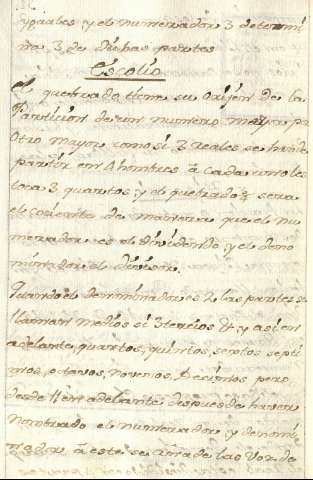 yguales y el numerador 3 determi
na 3 de dichas partes
Escolio
El quebrado tiene su orijen de la
Particion de un numero menor por
otro mayor como si 3 reales se han de
partir en 4 hombres á cada uno les
toca 3 quartos y el quebrado 3/4 sera
el cociente de manera que el nu
merador es el dividendo y el deno
minador el divisor.
Quando el denominador es 2 las partes se
llaman medios si 3 tercios & y asi en
adelante, quartos, quintos, sextos septi
mos, octavos, novenos, Decimos pero
desde 11 en adelante despues de haver
nombrado el numerador y denomi
nador á este se añade las voz de